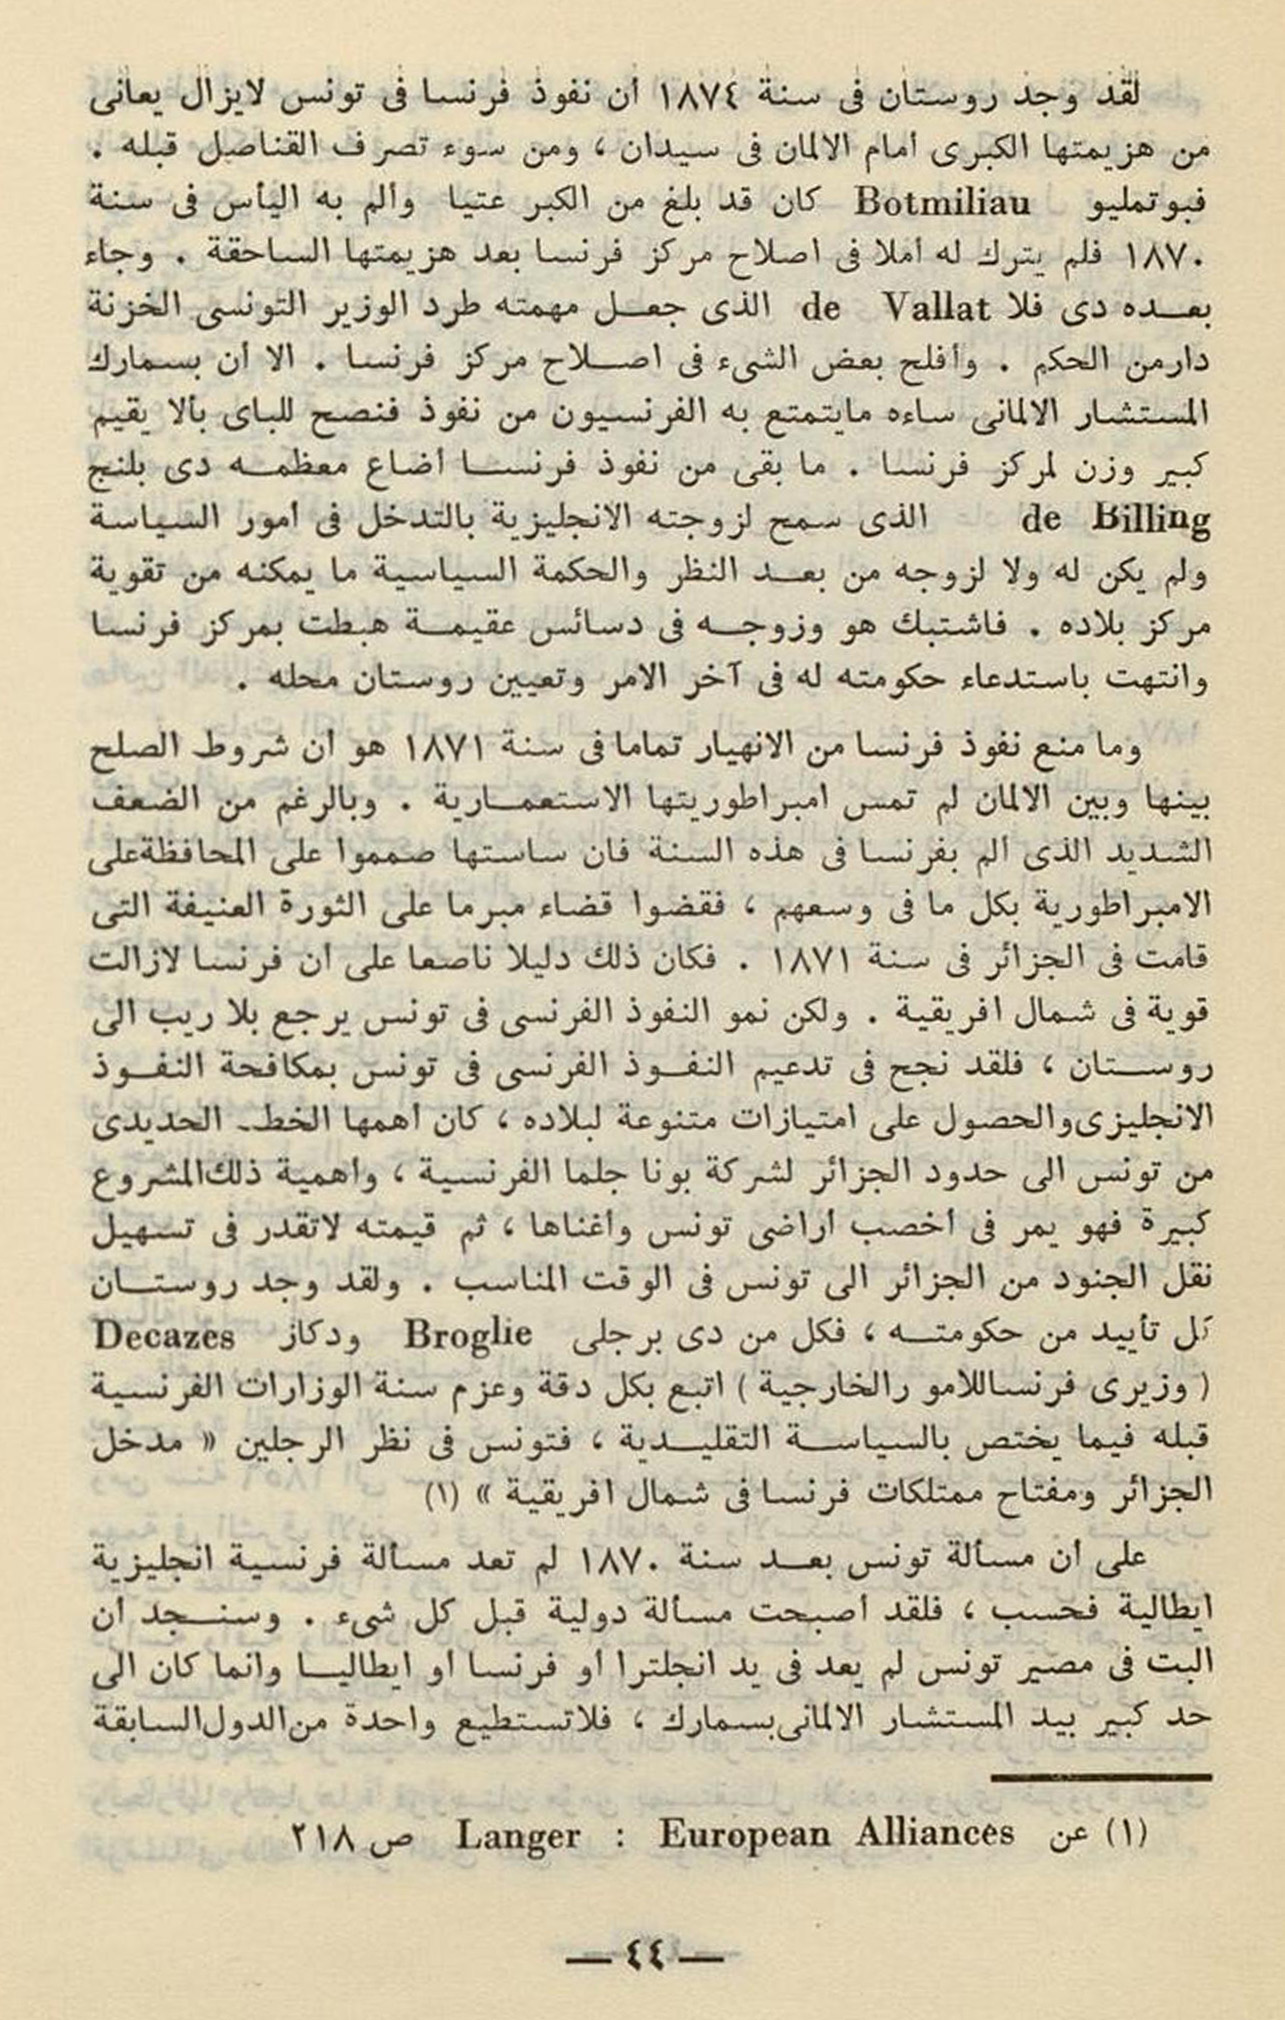 لقد وجد روستان فى سنة ١٨٧٤ أن نفوذ فرنسا فى تونس لايزال يعانى
من هزيمتها الكبرى أمام الالمان فى سيدان ، ومن سوء تصرف القناصل قبله .
فبوتمليو Botmiliau كان قد بلغ من الكبر عتيا وألم به اليأس فى سنة
١٨٧٠ فلم يترك له أملا فى اصلاح مركز فرنسا بعد هزيمتها الساحقة . وجاء
بعده دى فلا de Vallat الذى جعل مهمته طرد الوزير التونسى الخزنة
دارمن الحكم . وأفلح بعض الشىء فى اصلاح مركز فرنسا . الا أن بسمارك
المستشار الالمانى ساءه مايتمتع به الفرنسيون من نفوذ فنصح للباى بألا يقيم
كبير وزن لمركز فرنسا . ما بقى من نفوذ فرنسا أضاع معظمه دى بلنج
de Billing الذى سمح لزوجته الانجليزية بالتدخل فى أمور السياسة
ولم يكن له ولا لزوجه من بعد النظر والحكمة السياسية ما يمكنه من تقوية
مركز بلاده . فاشتبك هو وزوجه فى دسائس عقيمة هبطت بمركز فرنسا
وانتهت باستدعاء حكومته له فى آخر الامر وتعيين روستان محله .
وما منع نفوذ فرنسا من الانهيار تماما فى سنة ١٨٧١ هو أن شروط الصلح
بينها وبين الالمان لم تمس امبراطوريتها الاستعمارية . وبالرغم من الضعف
الشديد الذى ألم بفرنسا فى هذه السنة فان ساستها صمموا على المحافظةعلى
الامبراطورية بكل ما فى وسعهم ، فقضوا قضاء مبرما على الثورة العنيفة التى
قامت فى الجزائر فى سنة ١٨٧١ . فكان ذلك دليلا ناصعا على أن فرنسا لازالت
قوية فى شمال افريقية . ولكن نمو النفوذ الفرنسى فى تونس يرجع بلا ريب الى
روستان ، فلقد نجح فى تدعيم النفوذ الفرنسى فى تونس بمكافحة النفوذ
الانجليزى والحصول على امتيازات متنوعة لبلاده ، كان أهمها الخط الحديدى
من تونس الى حدود الجزائر لشركة بونا جلما الفرنسية ، وأهمية ذلك المشروع
كبيرة فهو يمر فى أخصب أراضى تونس وأغناها ، ثم قيمته لاتقدر فى تسهيل
نقل الجنود من الجزائر الى تونس فى الوقت المناسب . ولقد وجد روستان
كل تأييد من حكومته ، فكل من دى برجلى Broglie ودكاز Decazes
( وزيرى فرنساللامو رالخارجية ) اتبع بكل دقة وعزم سنة الوزارات الفرنسية
قبله فيما يختص بالسياسة التقليدية ، فتونس فى نظر الرجلين « مدخل
الجزائر ومفتاح ممتلكات فرنسا فى شمال افريقية » (١)
على أن مسألة تونس بعد سنة ١٨٧٠ لم تعد مسألة فرنسية انجليزية
ايطالية فحسب ، فلقد أصبحت مسألة دولية قبل كل شىء . وسنجد أن
البت فى مصير تونس لم يعد فى يد انجلترا أو فرنسا أو ايطاليا وانما كان الى
حد كبير بيد المستشار الالمانى بسمارك ، فلاتستطيع واحدة من الدول السابقة
(١) عن Langer : European Alliances ص ٢١٨
— ٤٤ —